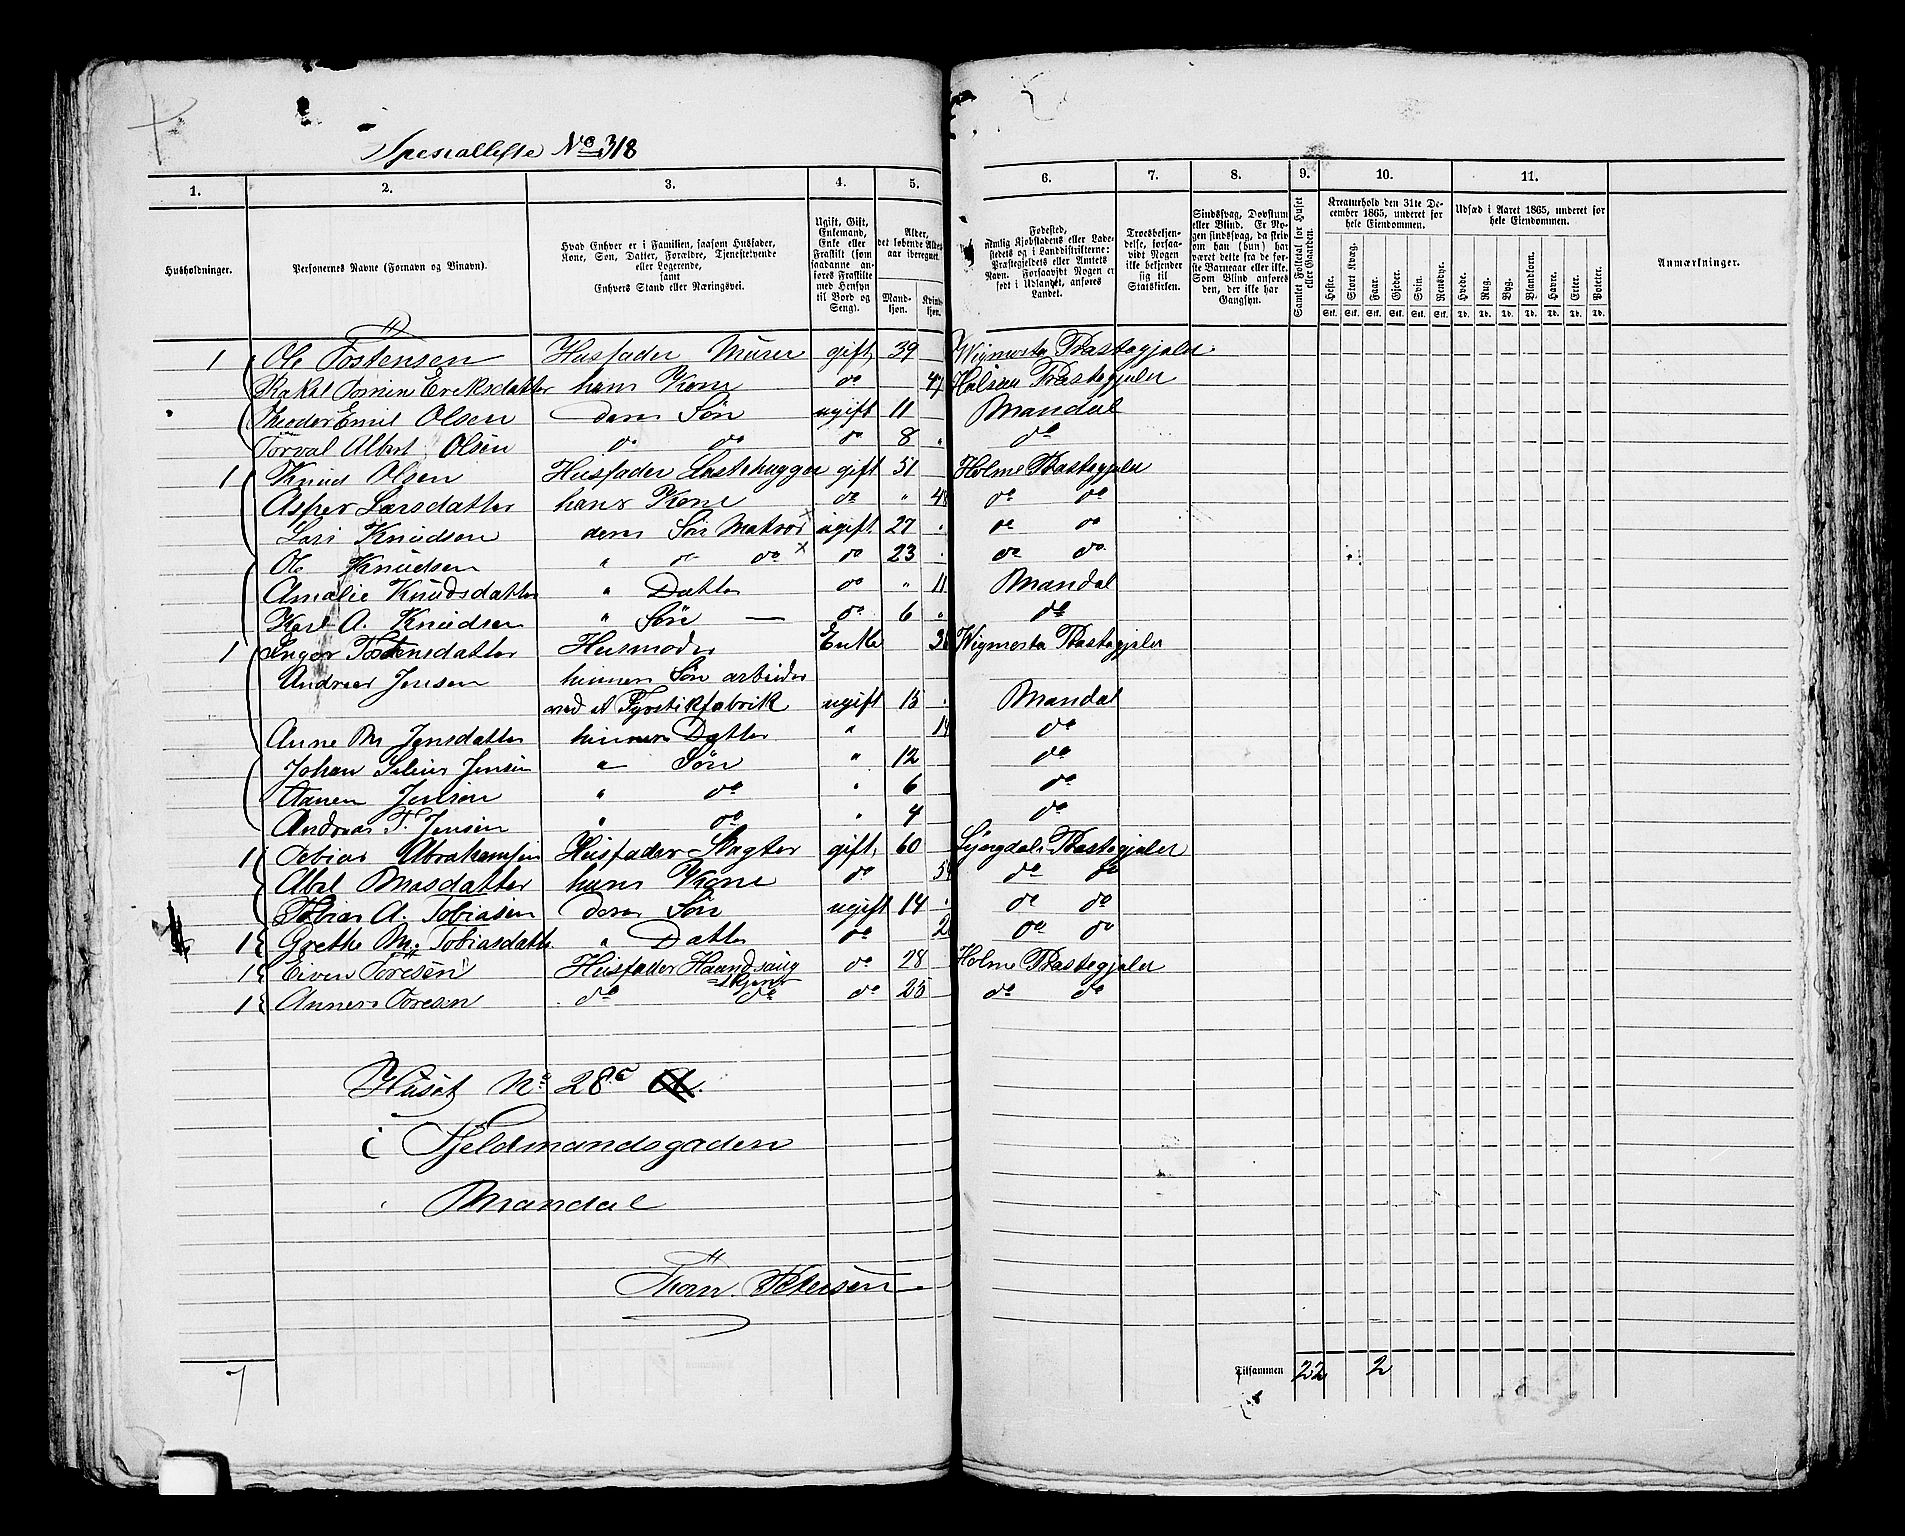 Specialliste No 318
1. 2. 3. 4. 5. 6. 7. 8. 9. 10. 11.
Husholdninger.
Personernes Navne (Fornavn og Binavn).
Hvad Enhver er i Familien, saasom Husfader, Kone, Søn, Datter, Forældre, Tjenestetyende eller Logerende, samt Enhvers Stand eller Næringsvei.
Ugift, Gift, Enkemand, Enke eller Fraskilt (som saadanne anføres Fraskilte med Hensyn til Bord og Seng).
Alder, det løbende Alders-aar iberegnet.
Mandkjøn. Kvindkjøn.
Fødested, nemlig Kjøbstadens eller Ladestedets og i Landdistrikterne: Præstegjeldets eller Amtets Navn. Forsaavidt Nogen er født i Udlandet, anføres Landet.
Troesbekjendelse, forsaavidt Nogen ikke bekjender sig til Statskirken.
Sindssvag, Døvstum eller Blind. Er Nogen sindssvag, da skrives om han (hun) har været dette fra de første Barneaar eller ikke. Som Blind anføres den, der ikke har Gangsyn.
Samlet Folketal for Huset eller Gaarden.
Kreaturhold den 31te December 1865, underet for hele Eiendommen.
Heste. Stort Kvæg. Faar. Gjeder. Svin. Rensdyr.
Udsæd i Aaret 1865, underet for hele Eiendommen.
Hvede. Rug. Byg. Blandkorn. Havre. Erter. Poteter.
Anmærkninger.
1 Ole Tostensen Husfader Murer gift 39 Wigmosta Præstegjeld
Rakel Tomine Ereksdatter hans Kone do 47 Halsaa Præstegjeld
Theodor Emil Olsen deres Søn ugift 11 Mandal
Torval Albert Olsen do do do 8 do
1 Knud Olsen Husfader Lastehugger gift 51 Holme Præstegjeld
Asper Larsdatter hans Kone do " 48 do do
Lars Knudsen deres Søn Matros ugift 27 do do
Ole Knudsen " do do do 23 do do
Amalie Knudsdatter " Datter do " 11 Mandal
Karl A. Knudsen " Søn — do 6 do
1 Inger Tostensdatter Husmoder Enke 38 Wigmosta Præstegjeld
Andreas Jensen hinnes Søn arbeider
ved et Fyrstikfabrik ugift 15 Mandal
Anne M Jensdatter hinnes Datter " 14 do
Johan Jensen " Søn " 12 do
Aanen Jensen " do " 6 do
Andreas T. Jensen " do " 4 do
1 Tobias Abrahamsen Husfader Slagter gift 60 Lyngdals Præstegjeld
Abel Masdatter hans Kone do do do
Tobias A. Tobiasen deres Søn ugift 14 do do
1 Grethe M. Tobiasdatter " Datter do do do
1 Eiven Toresen Husfader Haandsaug
skjerer do 28 Holme Præstegjeld
1 Anners Toresen do do do 25 do do
Huset No 28c
i Kjeldmandsgaden
Mandal
Thom Petersen
7 Tilsammen 22 2